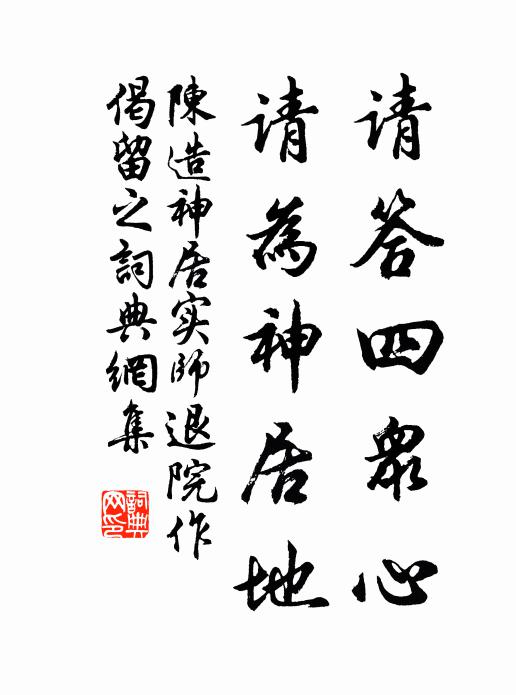 请答四衆心
请為神居地
陳造神居实師退院作
偈留之詞典網集
詞典网印